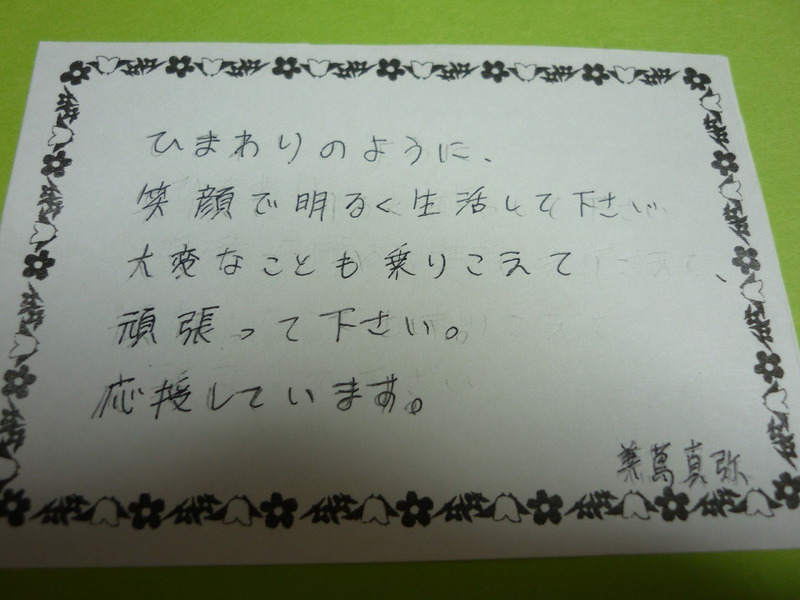 ひまわりのように、
笑顔で明るく生活して下さい
大変なことも乗りこえて、
頑張って下さい。
応援しています。
真弥